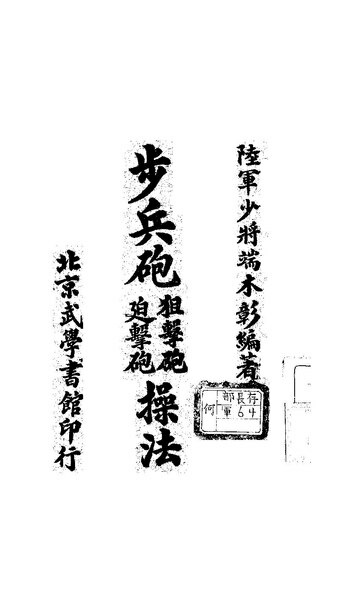 陸軍少將端木彰編著
步兵砲
狙擊砲
廹擊砲
操法
北京武學書館印行